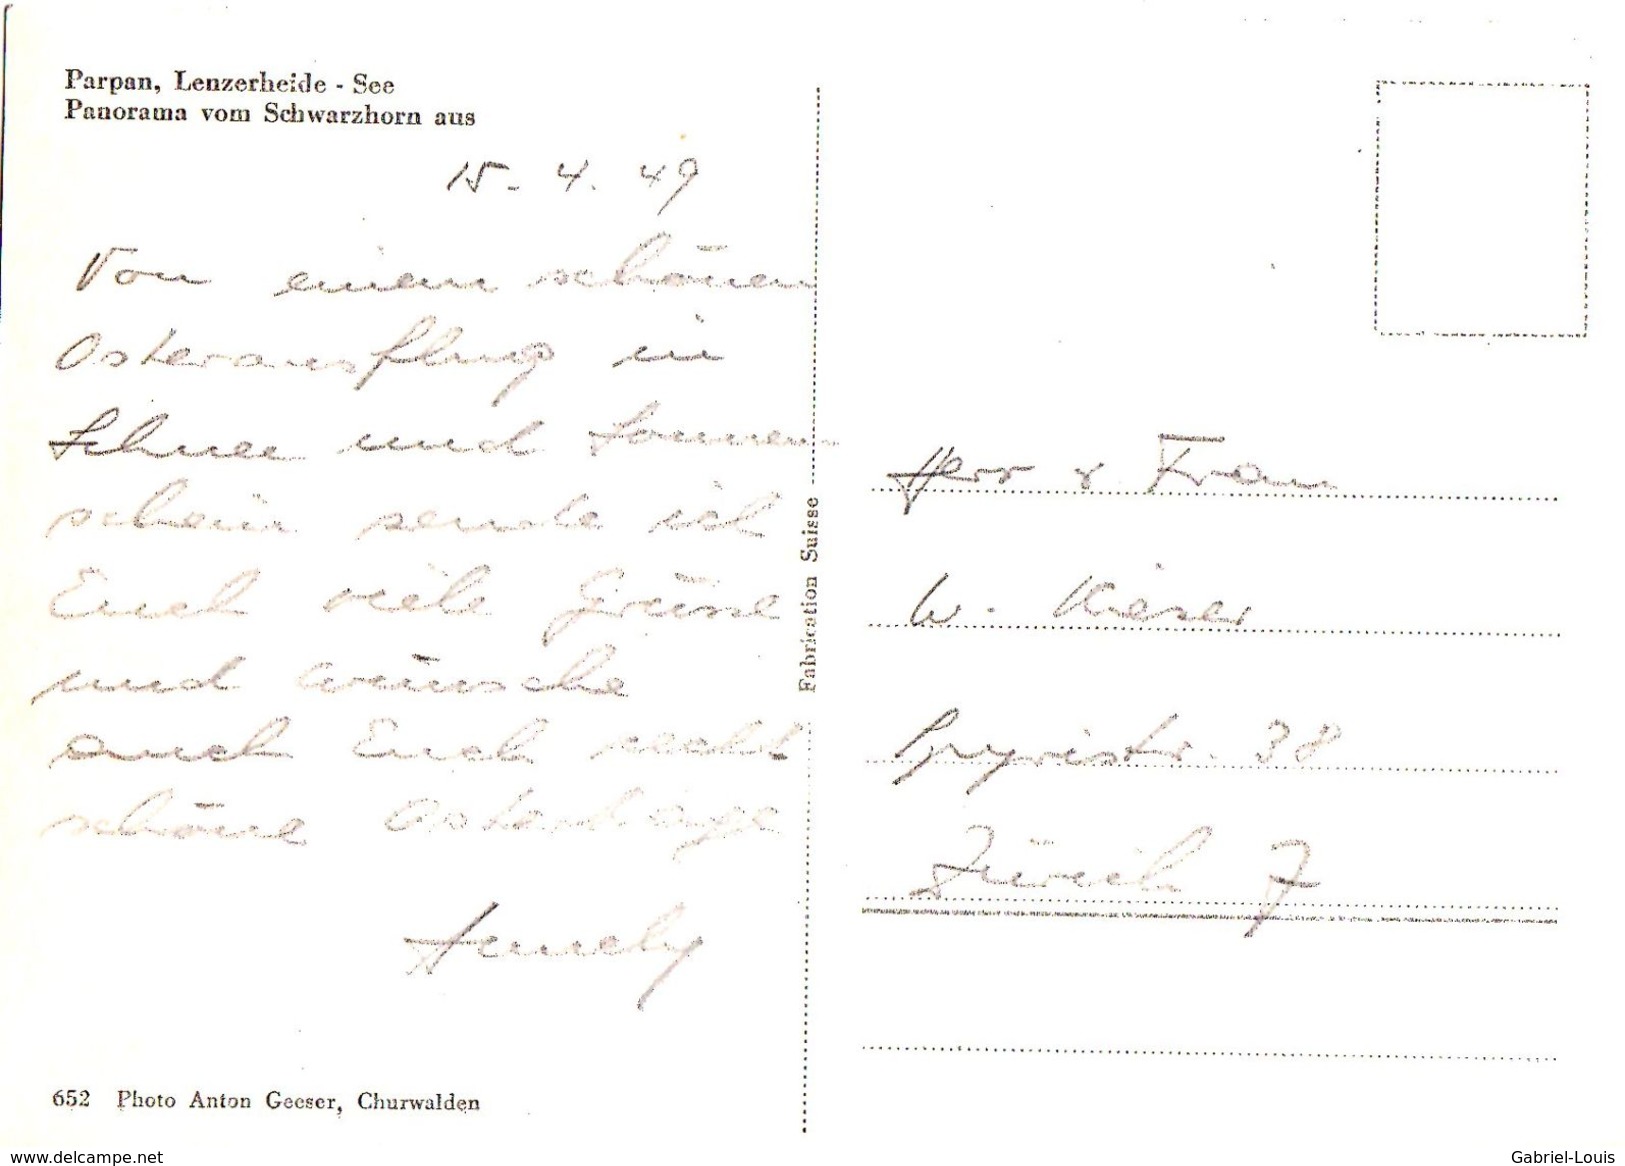 Parpan, Lenzerheide - See
Panorama vom Schwarzhorn aus
15. 4. 49
Von einem schönen
Osterausflug in
Schnee und Sonnen-
schein sende ich
Euch viele Grüsse
und wünsche
auch Euch recht
schöne Ostertage
Fabrication Suisse
Herr & Frau
W. Kieser
38
Zürich 7
652 Photo Anton Geeser, Churwalden
www.delcampe.net
Gabriel-Louis